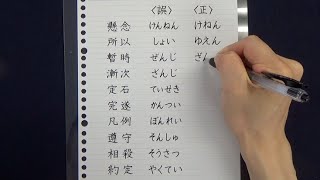 〈誤〉 〈正〉
懸念 けんねん けねん
所以 しょい ゆえん
暫時 ぜんじ ざん
漸次 ざんじ
定石 ていせき
完遂 かんつい
凡例 ぼんれい
遵守 そんしゅ
相殺 そうさつ
約定 やくてい